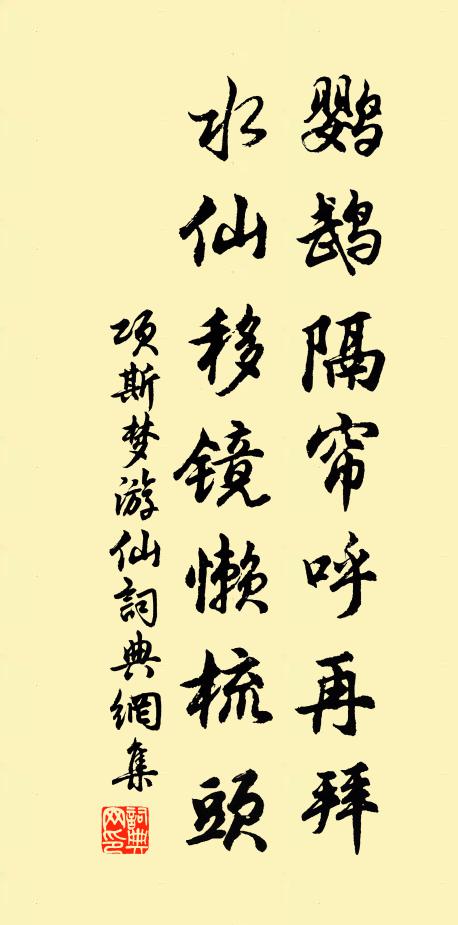 鹦鹉隔帘呼再拜
水仙移镜懒梳头
项斯梦游仙詞典網集
詞典
网印